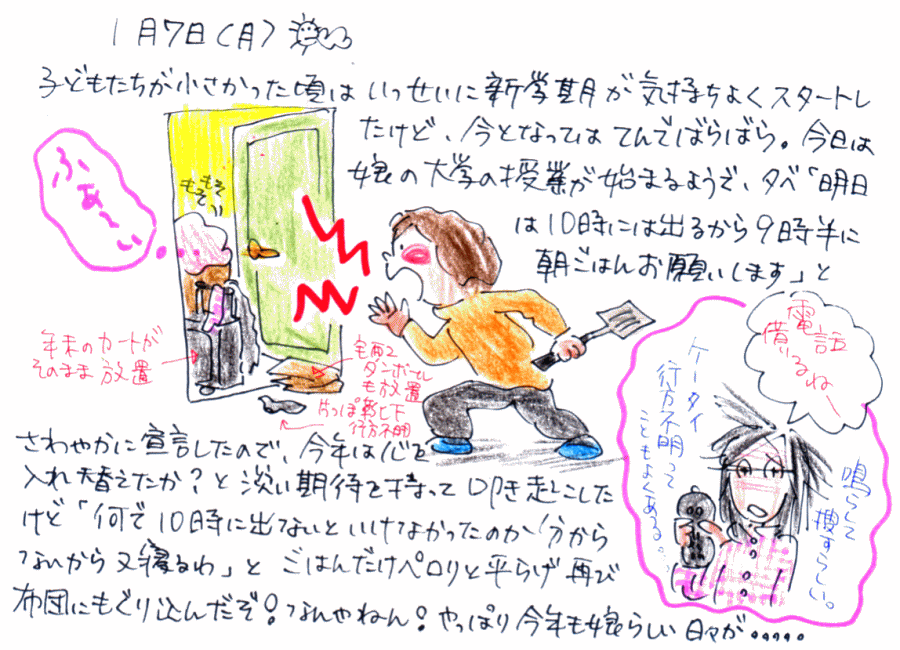 1月7日(月)
子どもたちが小さかった頃は いっせいに新学期が気持ちよくスタートし
たけど、今となっては てんでばらばら。今日は
娘の大学の授業が始まるようで、夕べ「明日
は10時には出るから9時半に
朝ごはんお願いします」と
ふあ〜い
もそ
もそ
年末のカートが
そのまま放置
宅配
ダンボール
も放置
片っぽ靴下
行方不明
電話
借りるね〜
ケータイ
行方不明って
こともよくある…
鳴らして
捜すらしい。
さわやかに宣言したので、今年は心を
入れ替えたか?と淡い期待を持って叩き起こした
けど「何で10時に出ないといけなかったのか分から
ないから又寝るわ」と ごはんだけペロリと平らげ再び
布団にもぐり込んだぞ!なんやねん!やっぱり今年も娘らしい日々が.....